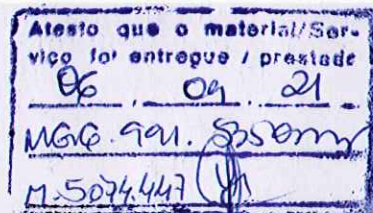 Atesto que o material/Ser-
viço foi entregue / prestado
06 . 09 . 21
M. 5074.447